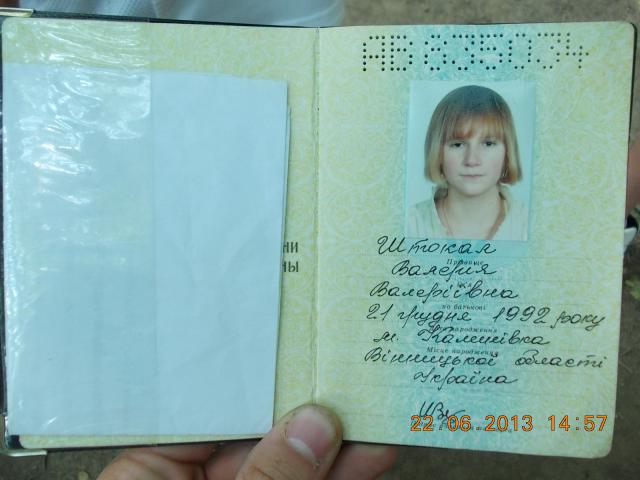 АВ 835034
ни
ны
Штокал
Прізвище
Валерия
Валеріївна
по батькові
21 грудня 1992 року
народження
м. Калинівка
Місце народження
Вінницької області
Україна
22.06.2013 14:57